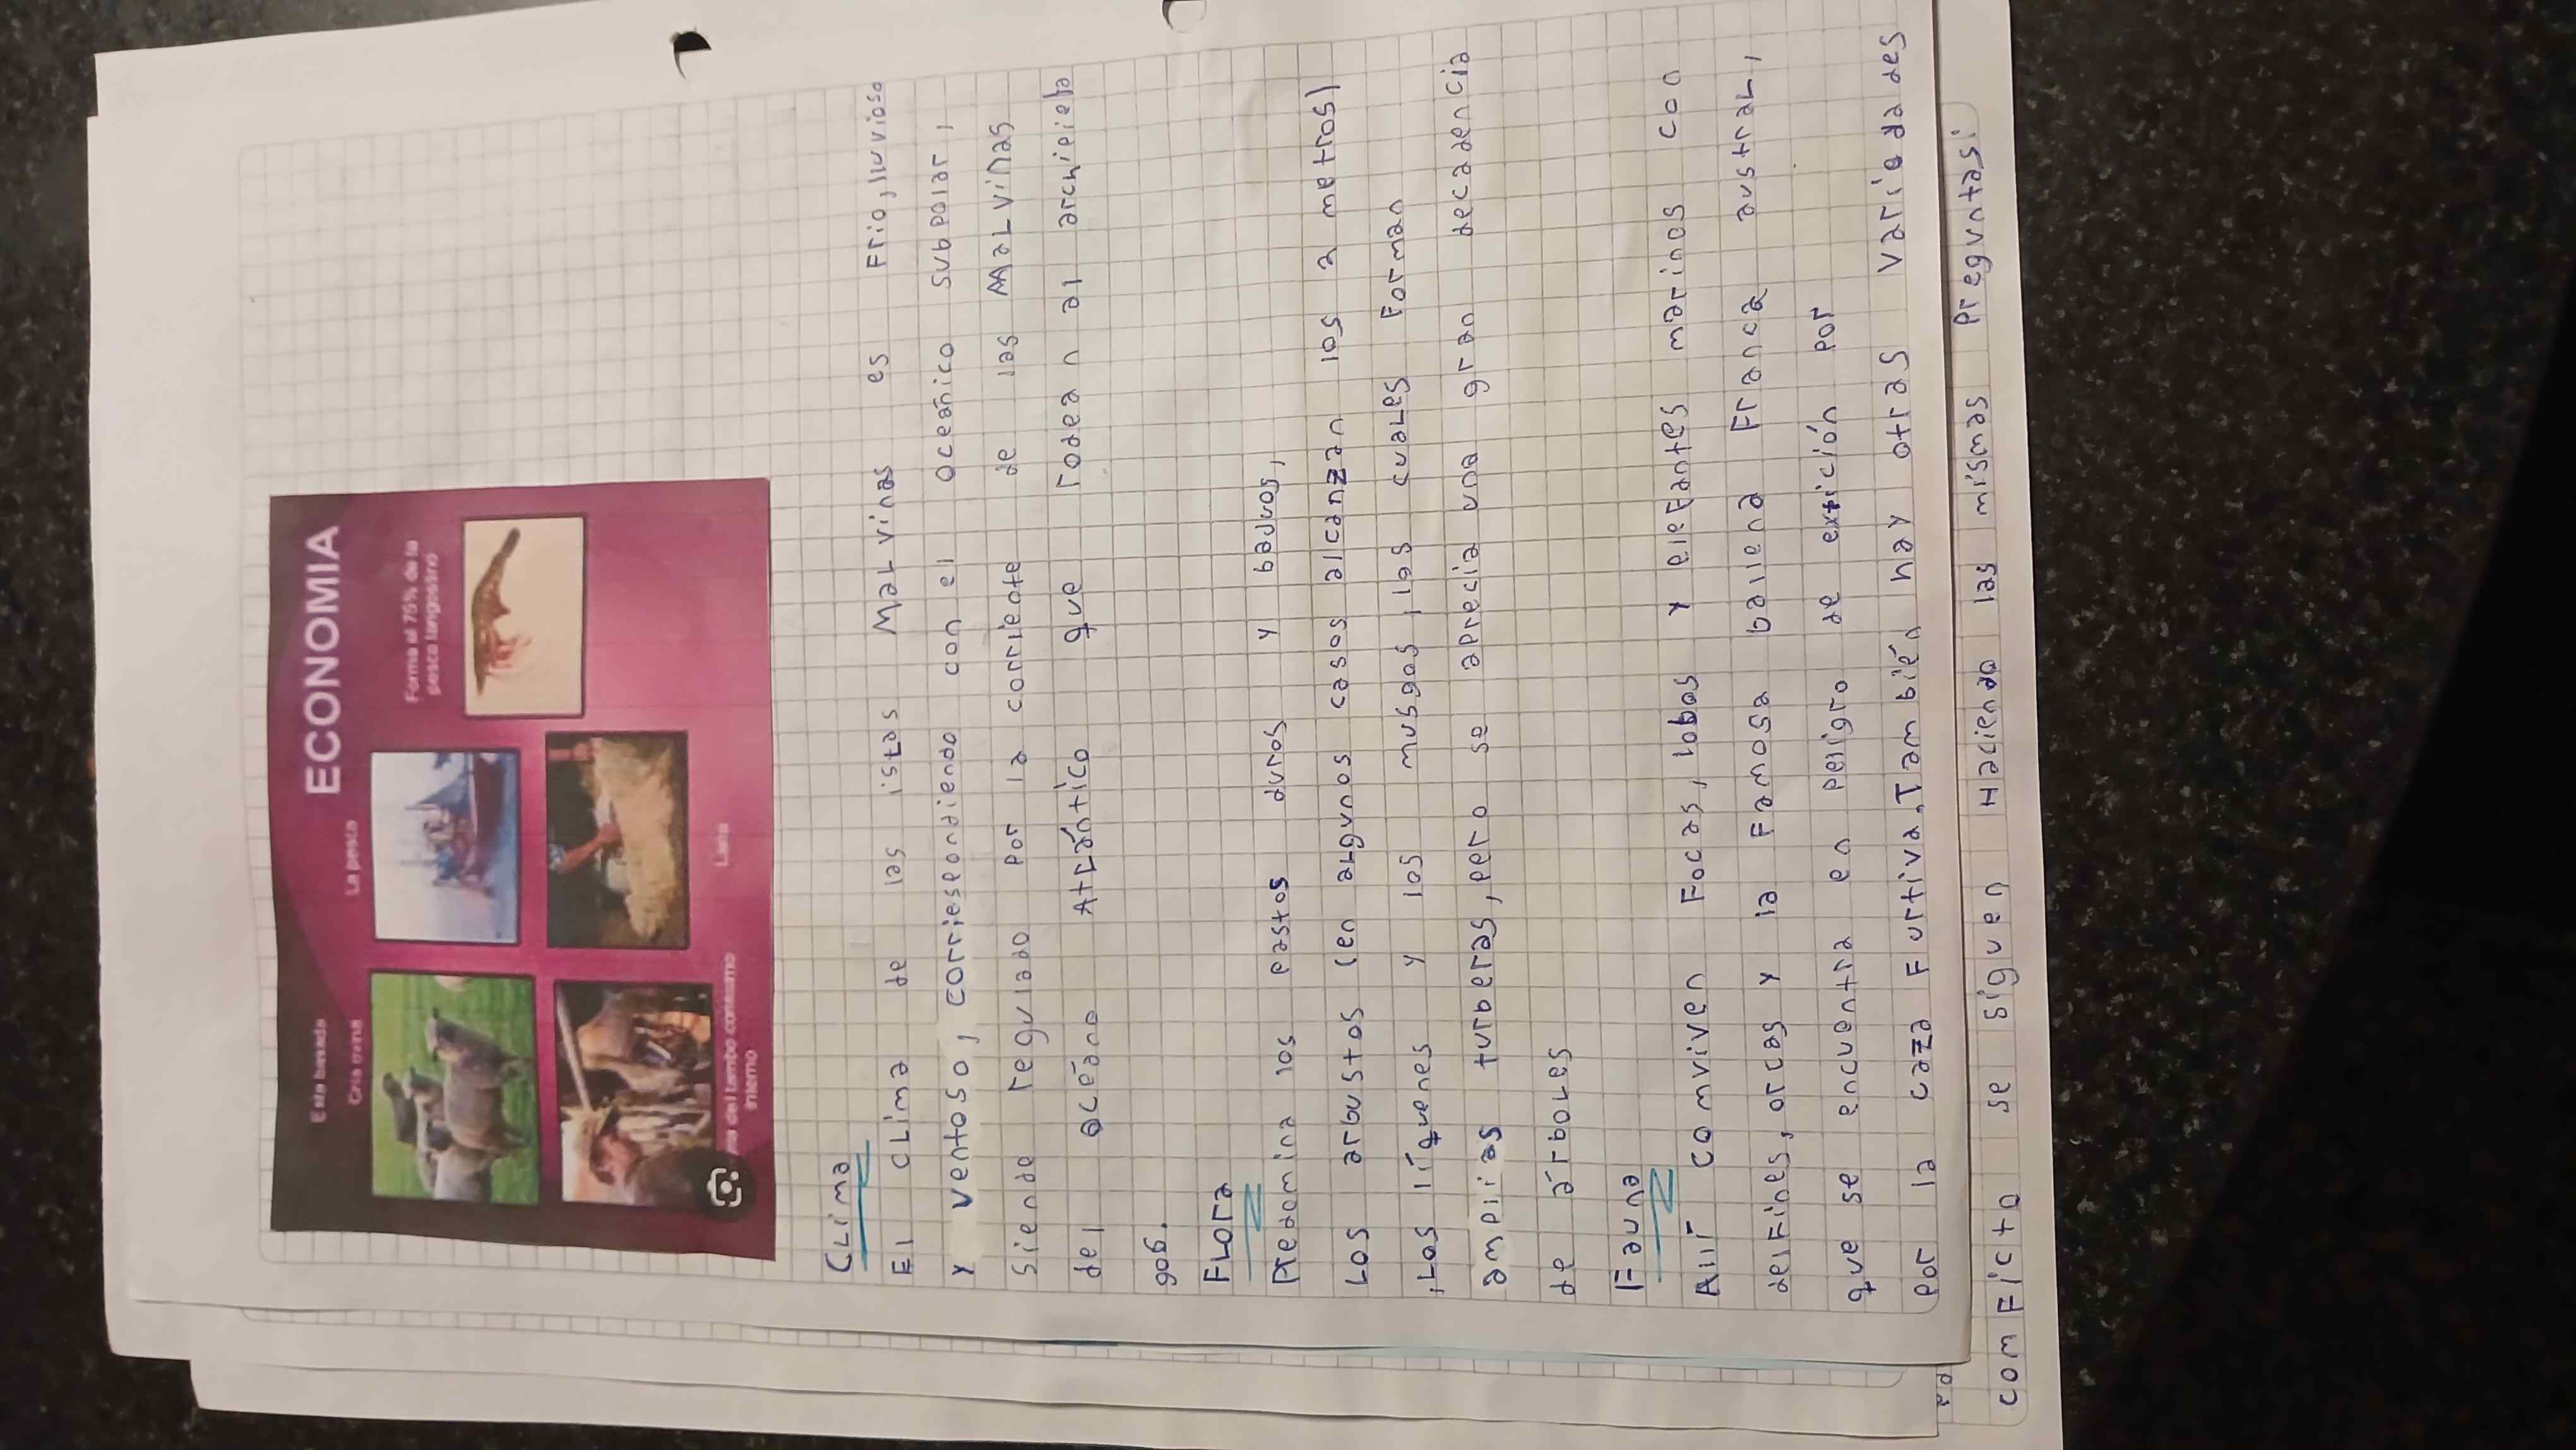 ECONOMIA
Esta basada
Cria ovina
La pesca
Forma el 75% de la
pesca langostino
del tambo consumo
interno
Lana
CLima
El cLima de las islas MaLvinas es Frio, lluvioso
y ventoso, corriesepondiendo con el oceánico subpolar,
siendo regulado por la corriente de las MaLvinas
del océano AtLántico que rodean al archipiela
gos.
FLora
Predomina los pastos duros y bajos,
Los arbustos (en aLgunos casos alcanzan los 2 metros)
,Los líquenes y los musgos, las cuaLes Forman
amplias turberas, pero se aprecia una gran decadencia
de árboLes
Fauna
Allí comviven Focas, lobos y eleFantes marinos con
delFines, orcas y la Famosa ballena Franca austraL,
que se encuentra en peligro de extición por
por la caza Furtiva. También hay otras variedades
comFicto se siguen Haciendo las mismas preguntas: